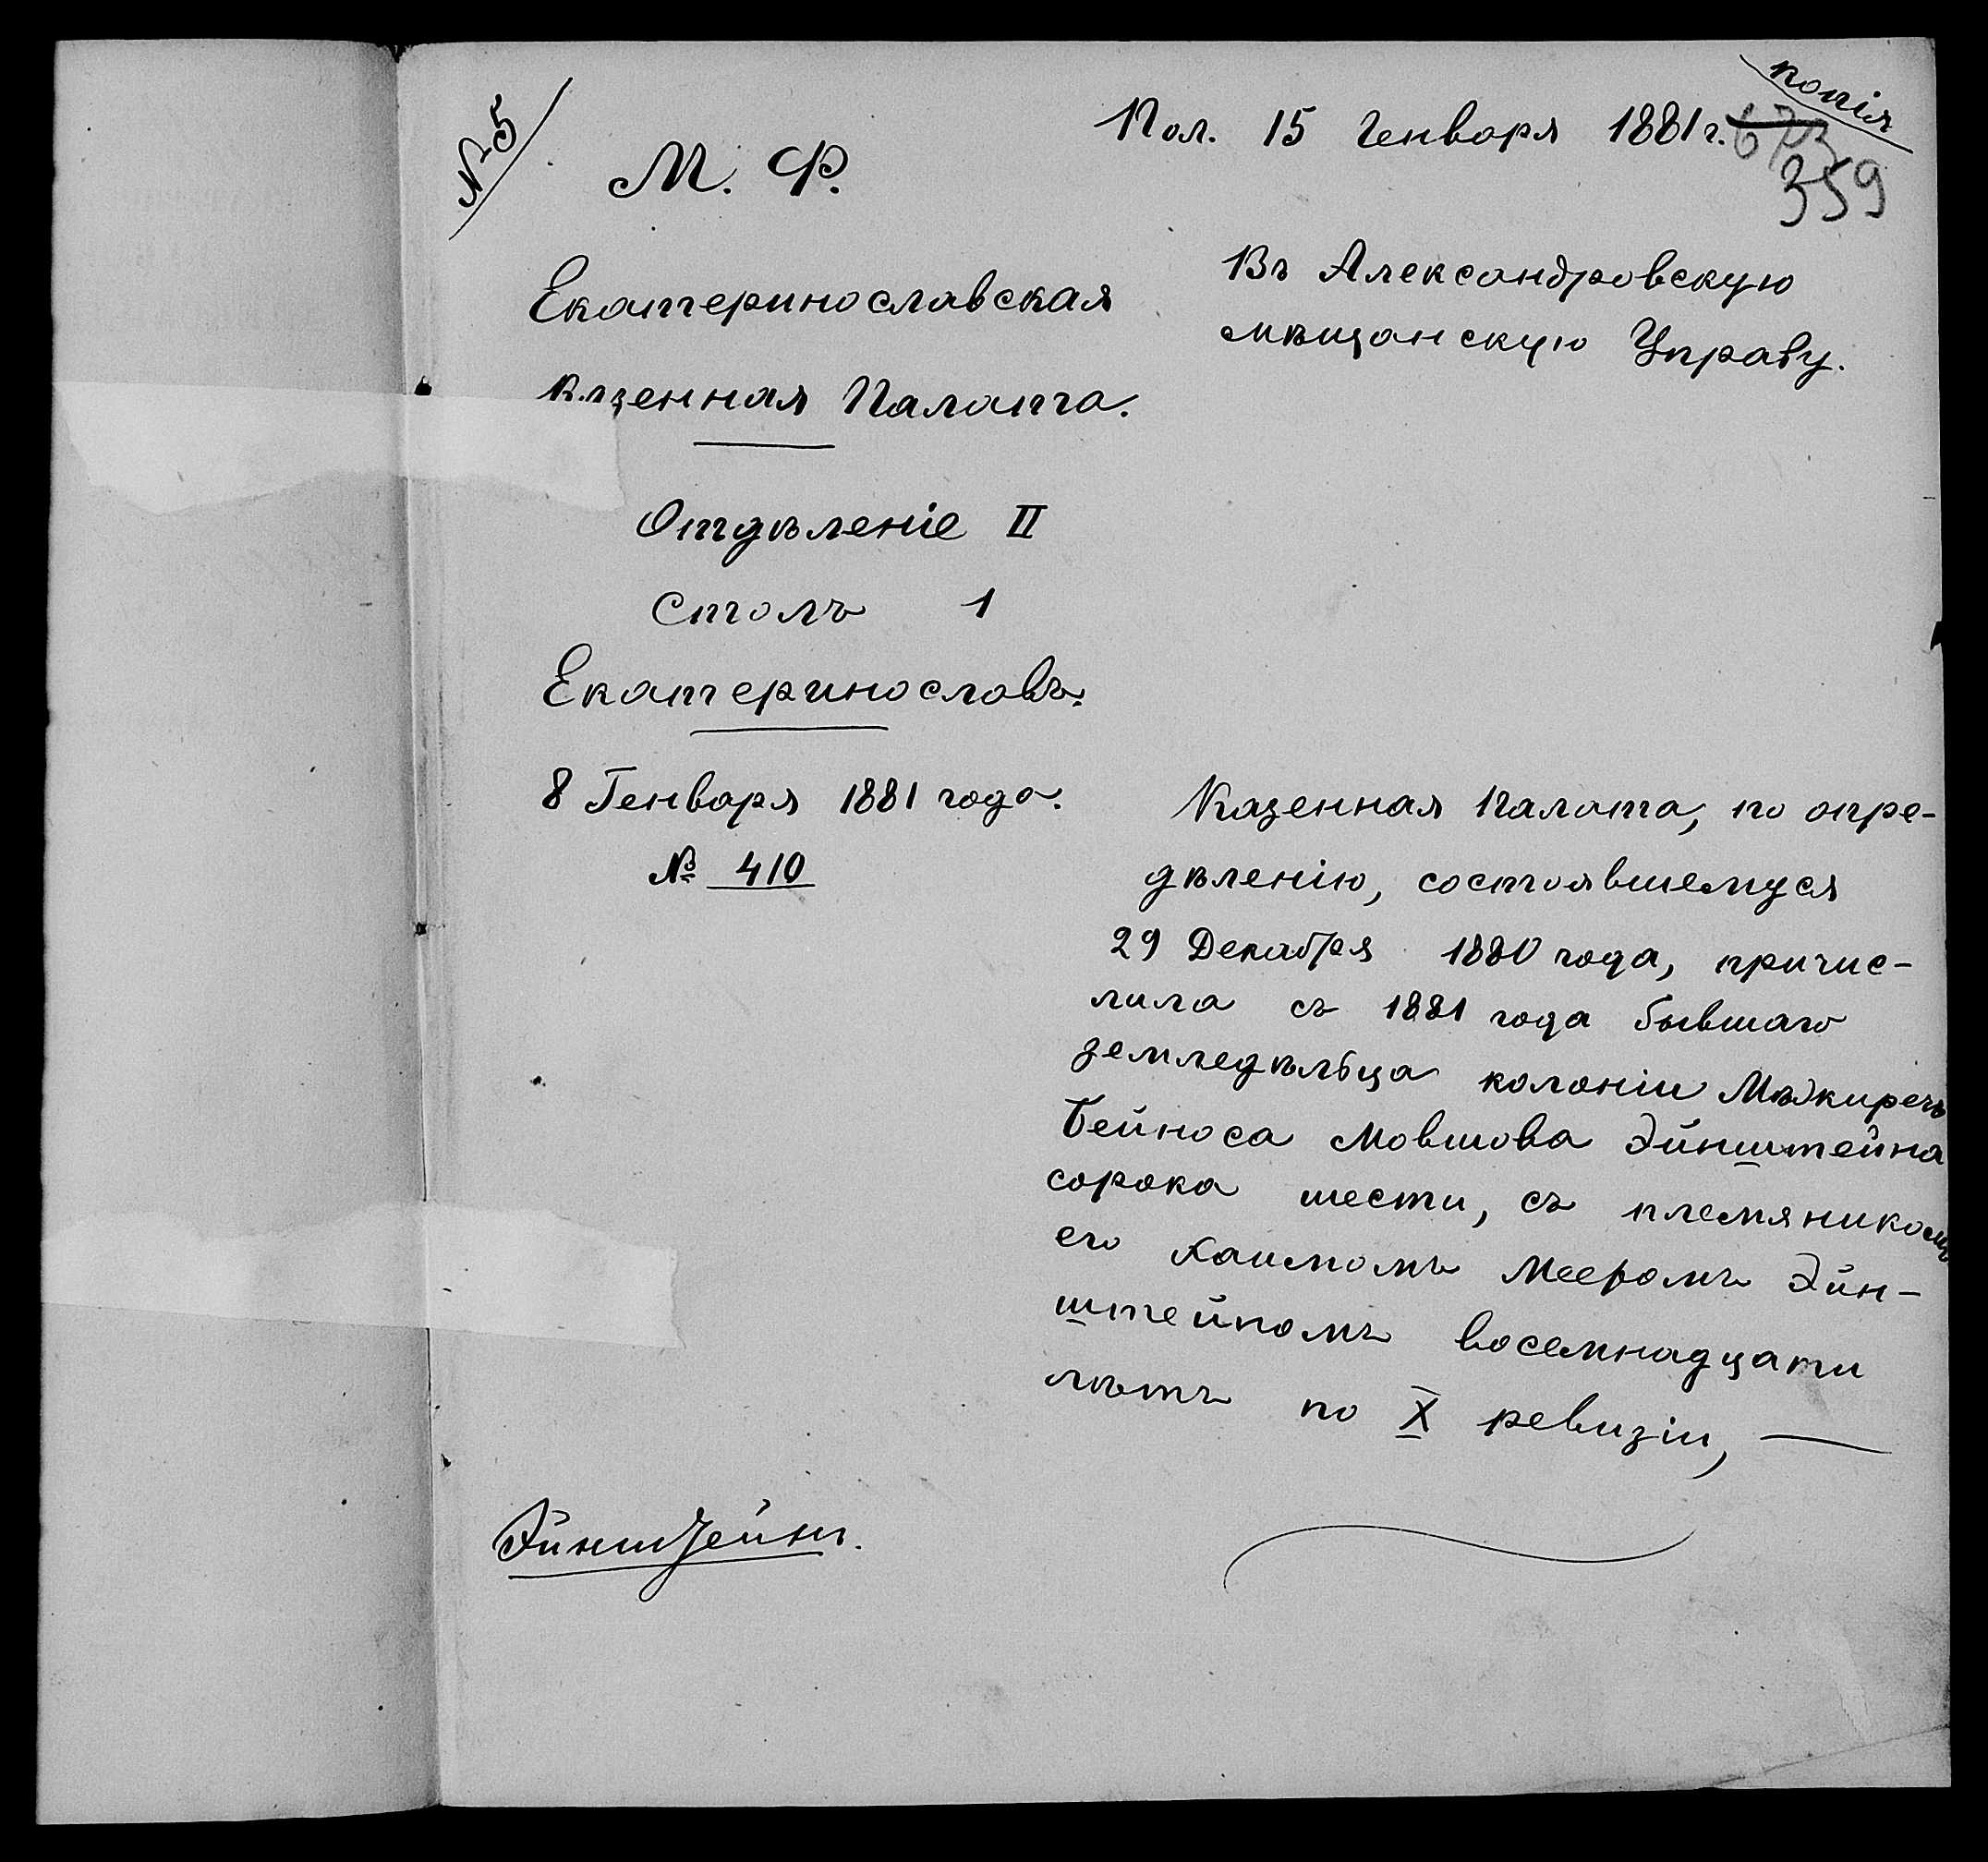 № 5
М. Ф.
Екатеринославская
Казенная Палата.
Отдѣленіе II
Столъ 1
Екатеринославъ.
8 Генваря 1881 года.
№ 410
Эйнштейнъ.
копія
Пол. 15 Генваря 1881 г.
359
Въ Александровскую
мѣщанскую Управу.
Казенная Палата, по опре-
дѣленію, состоявшемуся
29 Декабря 1880 года, причис-
лила съ 1881 года бывшаго
земледѣльца колоніи
Бейноса Мовшова Эйнштейна
сорока шести, съ племяникомъ
его Хаимомъ Мееромъ Эйн-
штейномъ восемнадцати
лѣтъ по X ревизіи,